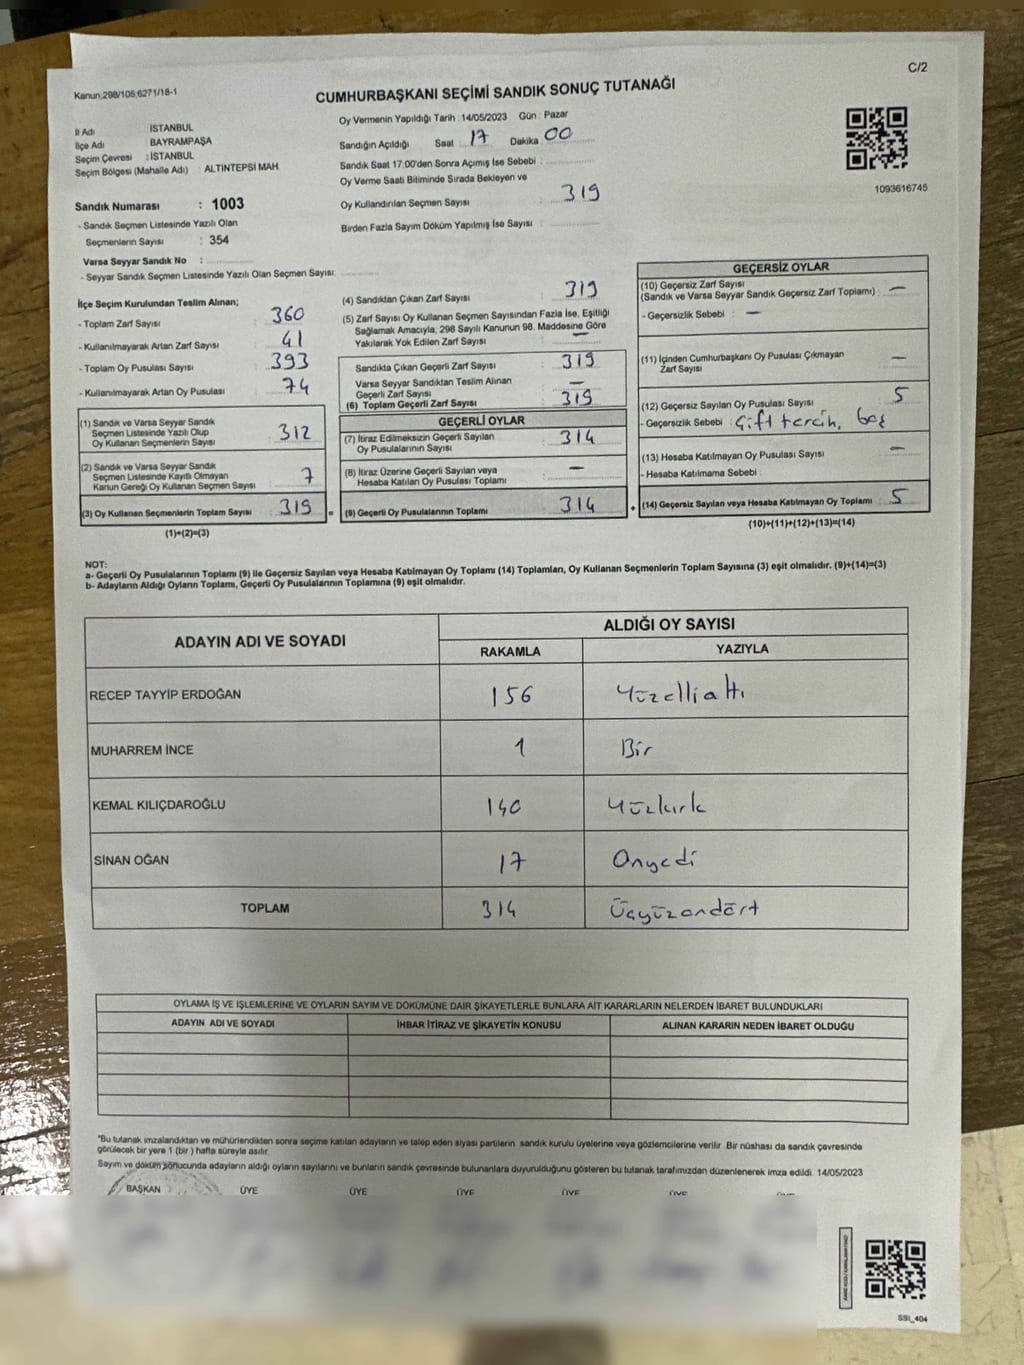 C/2
Kanun:298/105;6271/18-1
CUMHURBAŞKANI SEÇİMİ SANDIK SONUÇ TUTANAĞI
Oy Vermenin Yapıldığı Tarih : 14/05/2023 Gün : Pazar
İl Adı : İSTANBUL
İlçe Adı : BAYRAMPAŞA
Seçim Çevresi : İSTANBUL
Seçim Bölgesi (Mahalle Adı) : ALTINTEPSİ MAH.
Sandığın Açıldığı Saat : 17 Dakika : 00
Sandık Saat 17:00'den Sonra Açımış İse Sebebi :
Oy Verme Saati Bitiminde Sırada Bekleyen ve
Oy Kullandırılan Seçmen Sayısı : 319
Birden Fazla Sayım Döküm Yapılmış İse Sayısı :
1093616745
Sandık Numarası : 1003
- Sandık Seçmen Listesinde Yazılı Olan
Seçmenlerin Sayısı : 354
Varsa Seyyar Sandık No :
- Seyyar Sandık Seçmen Listesinde Yazılı Olan Seçmen Sayısı:
İlçe Seçim Kurulundan Teslim Alınan;
- Toplam Zarf Sayısı : 360
- Kullanılmayarak Artan Zarf Sayısı : 41
- Toplam Oy Pusulası Sayısı : 393
- Kullanılmayarak Artan Oy Pusulası : 74
(1) Sandık ve Varsa Seyyar Sandık
Seçmen Listesinde Yazılı Olup
Oy Kullanan Seçmenlerin Sayısı : 312
(2) Sandık ve Varsa Seyyar Sandık
Seçmen Listesinde Kayıtlı Olmayan
Kanun Gereği Oy Kullanan Seçmen Sayısı : 7
(3) Oy Kullanan Seçmenlerin Toplam Sayısı : 319 =
(1)+(2)=(3)
(4) Sandıktan Çıkan Zarf Sayısı : 319
(5) Zarf Sayısı Oy Kullanan Seçmen Sayısından Fazla İse, Eşitliği
Sağlamak Amacıyla; 298 Sayılı Kanunun 98. Maddesine Göre
Yakılarak Yok Edilen Zarf Sayısı : —
Sandıkta Çıkan Geçerli Zarf Sayısı : 319
Varsa Seyyar Sandıktan Teslim Alınan
Geçerli Zarf Sayısı : —
(6) Toplam Geçerli Zarf Sayısı : 319
GEÇERLİ OYLAR
(7) İtiraz Edilmeksizin Geçerli Sayılan
Oy Pusulalarının Sayısı : 314
(8) İtiraz Üzerine Geçerli Sayılan veya
Hesaba Katılan Oy Pusulası Toplamı : —
(9) Geçerli Oy Pusulalarının Toplamı : 314 +
GEÇERSİZ OYLAR
(10) Geçersiz Zarf Sayısı
(Sandık ve Varsa Seyyar Sandık Geçersiz Zarf Toplamı) : —
- Geçersizlik Sebebi : —
(11) İçinden Cumhurbaşkanı Oy Pusulası Çıkmayan
Zarf Sayısı : —
(12) Geçersiz Sayılan Oy Pusulası Sayısı : 5
- Geçersizlik Sebebi : Çift tercih, boş
(13) Hesaba Katılmayan Oy Pusulası Sayısı : —
- Hesaba Katılmama Sebebi :
(14) Geçersiz Sayılan veya Hesaba Katılmayan Oy Toplamı : 5
(10)+(11)+(12)+(13)=(14)
NOT:
a- Geçerli Oy Pusulalarının Toplamı (9) ile Geçersiz Sayılan veya Hesaba Katılmayan Oy Toplamı (14) Toplamları, Oy Kullanan Seçmenlerin Toplam Sayısına (3) eşit olmalıdır. (9)+(14)=(3)
b- Adayların Aldığı Oyların Toplamı, Geçerli Oy Pusulalarının Toplamına (9) eşit olmalıdır.
ADAYIN ADI VE SOYADI
ALDIĞI OY SAYISI
RAKAMLA YAZIYLA
RECEP TAYYİP ERDOĞAN 156 Yüzellialtı
MUHARREM İNCE 1 Bir
KEMAL KILIÇDAROĞLU 140 Yüzkırk
SİNAN OĞAN 17 Onyedi
TOPLAM 314 Üçyüzondört
OYLAMA İŞ VE İŞLEMLERİNE VE OYLARIN SAYIM VE DÖKÜMÜNE DAİR ŞİKAYETLERLE BUNLARA AİT KARARLARIN NELERDEN İBARET BULUNDUKLARI
ADAYIN ADI VE SOYADI İHBAR İTİRAZ VE ŞİKAYETİN KONUSU ALINAN KARARIN NEDEN İBARET OLDUĞU
"Bu tutanak imzalandıktan ve mühürlendikten sonra seçime katılan adayların ve talep eden siyasi partilerin sandık kurulu üyelerine veya gözlemcilerine verilir. Bir nüshası da sandık çevresinde
görülecek bir yere 1 (bir ) hafta süreyle asılır.
Sayım ve döküm sonucunda adayların aldığı oyların sayılarını ve bunların sandık çevresinde bulunanlara duyurulduğunu gösteren bu tutanak tarafımızdan düzenlenerek imza edildi. 14/05/2023
BAŞKAN ÜYE ÜYE ÜYE ÜYE ÜYE ÜYE
SSI_404